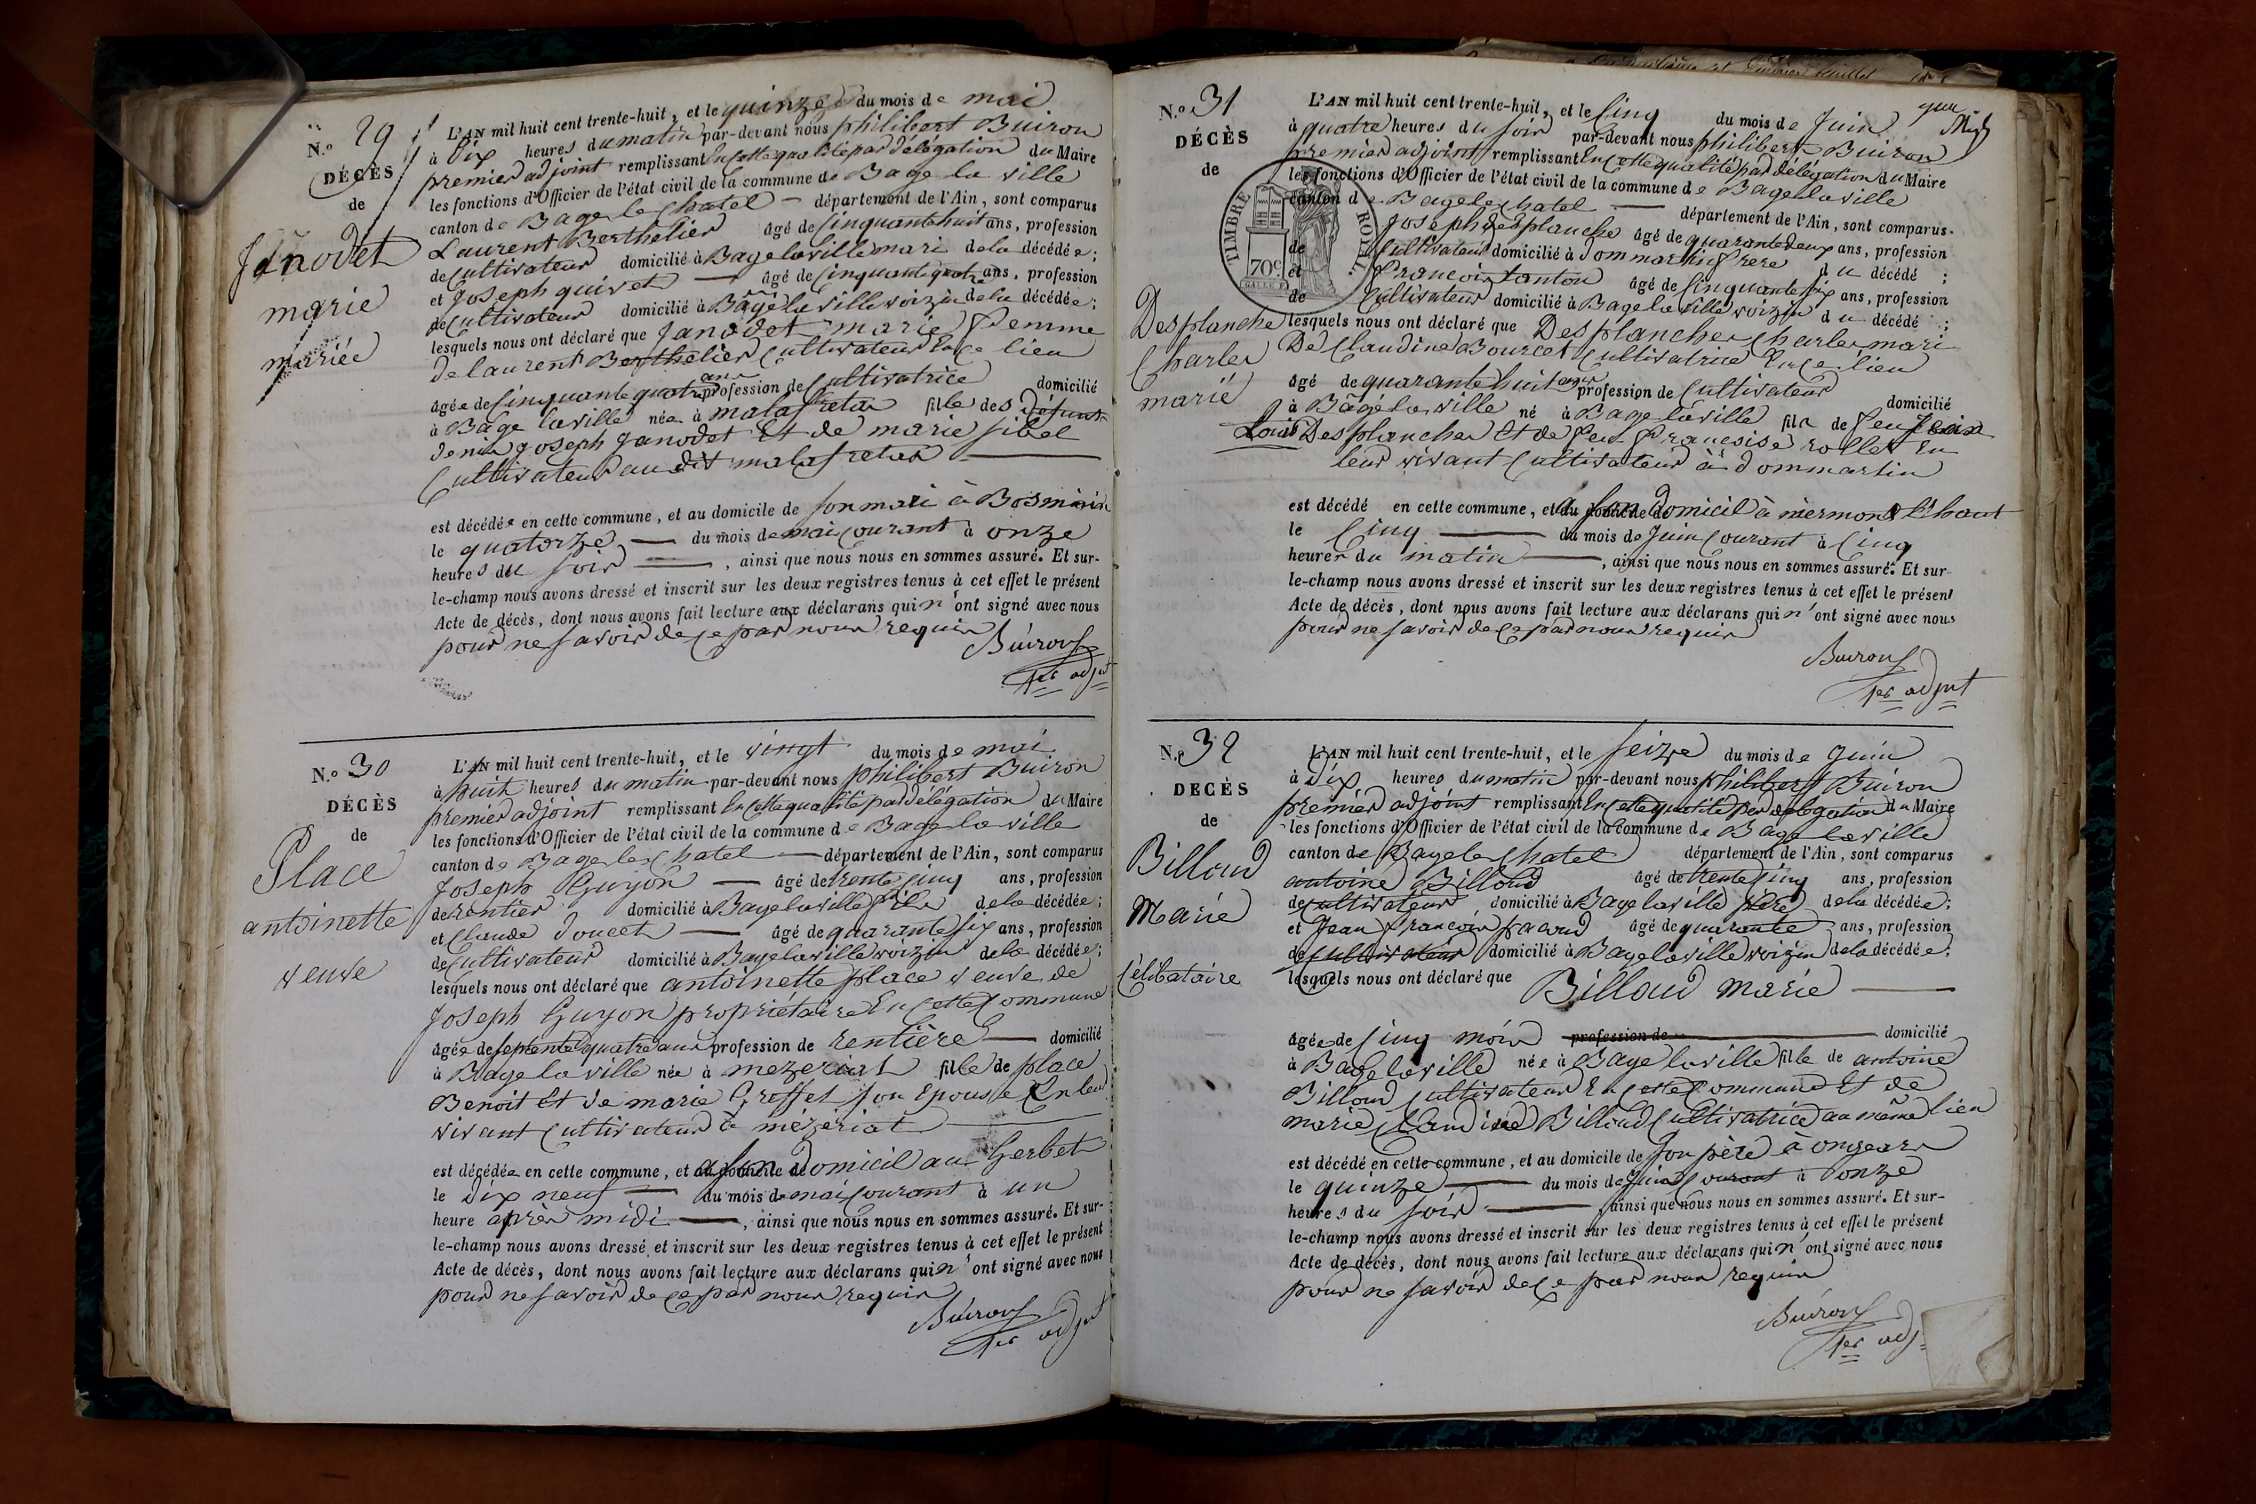 N.o 29
DÉCÈS
de
Janodet
marie
mariée
L'AN mil huit cent trente-huit, et le quinze du mois de mai
à dix heures du matin par-devant nous philibert Buiron
premier adjoint remplissant En cette qualité par délégation du Maire
les fonctions d'Officier de l'état civil de la commune de Bage la ville
canton de Bage le Chatel département de l'Ain, sont comparus
Laurent Berthelier âgé de Cinquante huit ans, profession
de Cultivateur domicilié à Bage la ville mari de la décédée;
et Joseph quivet âgé de Cinquante quatre ans, profession
de Cultivateur domicilié à Bagé la ville voizin de la décédée;
lesquels nous ont déclaré que Janodet marie femme
de laurent Berthelier Cultivateur En ce lieu
âgée de Cinquante quatre ans profession de Cultivatrice domicilié
à Bage la ville née à malafretas fille des défunts
denis Joseph Janodet Et de marie sibel
Cultivateur au dit malafretas
est décédée en cette commune, et au domicile de son mari à Bosmirin
le quatorze du mois de mai Courant à onze
heures du soir, ainsi que nous nous en sommes assuré. Et sur-
le-champ nous avons dressé et inscrit sur les deux registres tenus à cet effet le présent
Acte de décès, dont nous avons fait lecture aux déclarans qui n'ont signé avec nous
pour ne savoir de ce par nous requis
Buiron
1er adjt
N.o 30
DÉCÈS
de
Place
antoinette
veuve
L'AN mil huit cent trente-huit, et le vingt du mois de mai
à huit heures du matin par-devant nous philibert Buiron
premier adjoint remplissant En cette qualité par délégation du Maire
les fonctions d'Officier de l'état civil de la commune de Bage la ville
canton de Bage le Chatel département de l'Ain, sont comparus
Joseph Guyon âgé de trente Cinq ans, profession
de rentier domicilié à Bage la ville fils de la décédée;
et Claude doucet âgé de quarante six ans, profession
de Cultivateur domicilié à Bage la ville voizin de la décédée;
lesquels nous ont déclaré que antoinette place veuve de
Joseph Guyon propriétaire En cette Commune
âgée de septente quatre ans profession de rentière domicilié
à Bage la ville née à mezeriat fille de place
Benoit Et de marie Greffet son Epouse En leur
vivant Cultivateur à mézeriat
est décédée en cette commune, et au domicile de a son domicil au Gerbet
le dix neuf du mois de mai Courant à un
heure après midi, ainsi que nous nous en sommes assuré. Et sur-
le-champ nous avons dressé et inscrit sur les deux registres tenus à cet effet le présent
Acte de décès, dont nous avons fait lecture aux déclarans qui n'ont signé avec nous
pour ne savoir de ce par nous requis
Buiron
1er adjt
N.o 31
DÉCÈS
de
Desplanche
Charles
marié
TIMBRE ROYAL
70c
L'AN mil huit cent trente-huit, et le Cinq du mois de Juin
à quatre heures du soir par-devant nous philibert Buiron
premier adjoint remplissant En cette qualité par délégation du Maire
les fonctions d'Officier de l'état civil de la commune de Bage la ville
canton de Bage le Chatel département de l'Ain, sont comparus
Joseph Desplanche âgé de quarante deux ans, profession
de Cultivateur domicilié à dommartin frere du décédé;
et francois tanton âgé de Cinquante six ans, profession
de Cultivateur domicilié à Bage la ville voizin du décédé;
lesquels nous ont déclaré que Desplanches Charles mari
De Claudine Bourcet Cultivatrice En ce lieu
âgé de quarante huit ans profession de Cultivateur domicilié
à Bâgé la ville né à Bage la ville fils de feu
Louis Desplanches Et de feu françoise rollet En
leur vivant Cultivateur à dommartin
est décédé en cette commune, et au domicile de a son domicil à mermont l'haut
le Cinq du mois de Juin Courant à Cinq
heures du matin, ainsi que nous nous en sommes assuré. Et sur-
le-champ nous avons dressé et inscrit sur les deux registres tenus à cet effet le présent
Acte de décès, dont nous avons fait lecture aux déclarans qui n'ont signé avec nous
pour ne savoir de ce par nous requis
Buiron
1er adjnt
N.o 32
DECÈS
de
Billoud
Marie
Célibataire
L'AN mil huit cent trente-huit, et le seize du mois de Juin
à dix heures du matin par-devant nous philibert Buiron
premier adjoint remplissant En cette qualité par délégation du Maire
les fonctions d'Officier de l'état civil de la commune de Bage la ville
canton de Bage le Chatel département de l'Ain, sont comparus
antoine Billoud âgé de trente Cinq ans, profession
de Cultivateur domicilié à Bage la ville père de la décédée;
et Jean françois pacoud âgé de quarante ans, profession
de Cultivateur domicilié à Bage la ville voizin de la décédée;
lesquels nous ont déclaré que Billoud marie
âgée de Cinq mois profession de domicilié
à Bage la ville née à Bage la ville fille de antoine
Billoud Cultivateur En cette Commune Et de
marie Claudine Billoud Cultivatrice au même lieu
est décédé en cette commune, et au domicile de son père à ongears
le quinze du mois de Juin Courant à onze
heures du soir, ainsi que nous nous en sommes assuré. Et sur-
le-champ nous avons dressé et inscrit sur les deux registres tenus à cet effet le présent
Acte de décès, dont nous avons fait lecture aux déclarans qui n'ont signé avec nous
pour ne savoir de ce par nous requis
Buiron
1er adj